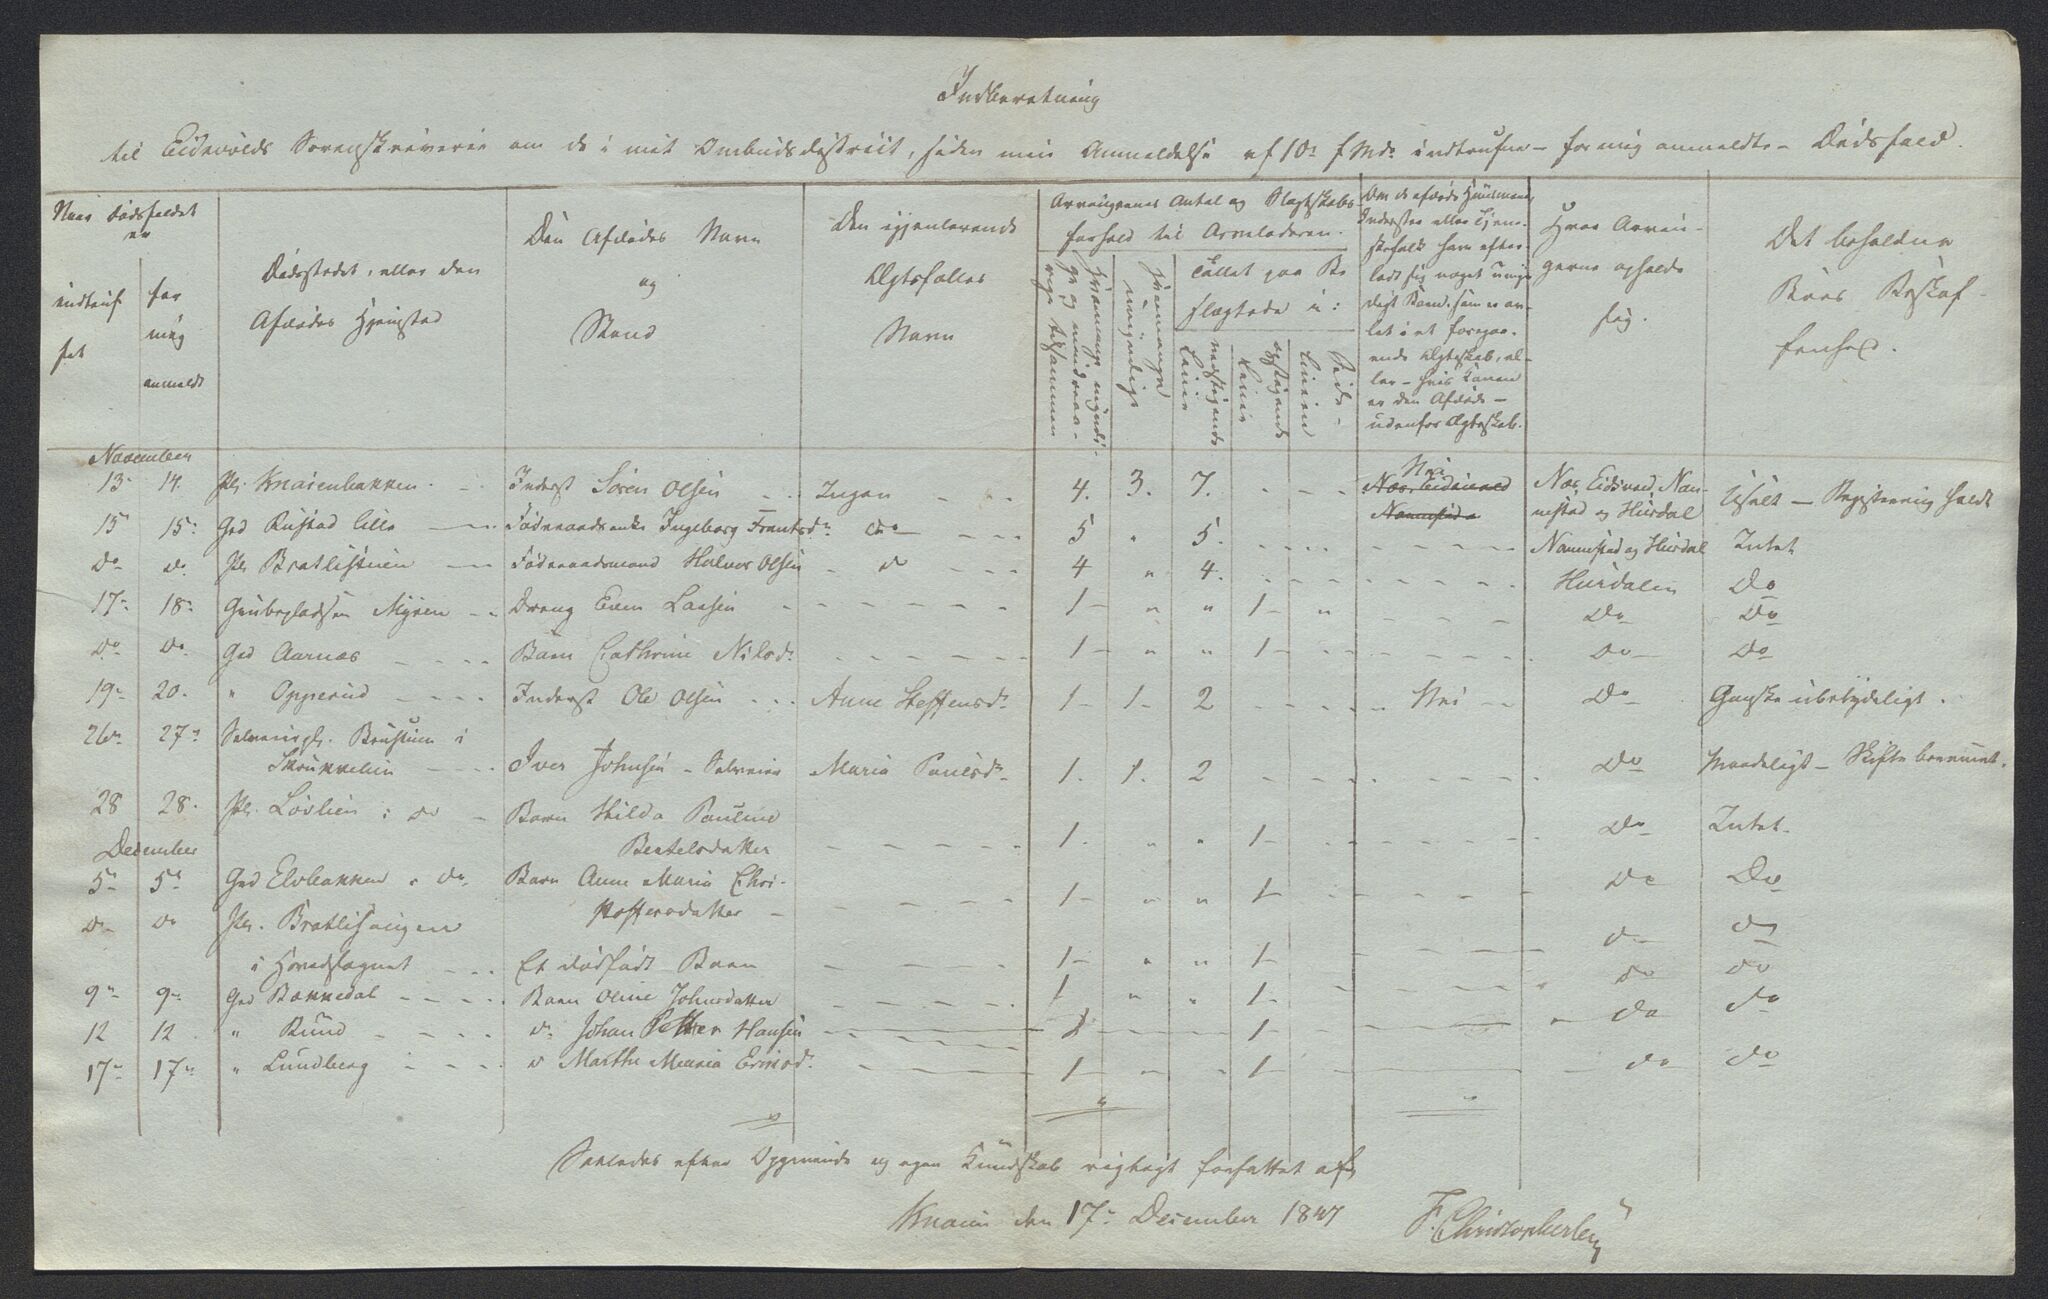 Indberetning
til Eidsvolds Sorenskriverie om de i mit Ombudsdistrict, siden min Anmeldelse af 10de f. Md. indtrufne – for mig anmeldte – Dødsfald.
Naar Dødsfaldet
er
indtruf
fet
for
mig
anmeldt
Dødsstedet, eller den
Afdødes Hjemsted
Den Afdødes Navn
og
Stand
Den igjenlevende
Ægtefælles
Navn
Arvingernes Antal og Slægtskabs-
forhold til Arveladeren.
hvormange umyndi-
ge og mindreaa-
rige tilsammen
hvormange
umyndige
Tallet paa Be
slægtede i:
nedstigende
Linie
opstigende
Linie
Side-
Linien
Om de afdøde Huusmænd,
Inderster eller Tjene-
stefolk have efter-
ladt sig noget umyn-
digt Barn, som er av-
let i et foregaa-
ende Ægteskab, el-
ler – hvis Konen
er den Afdøde –
udenfor Ægteskab.
Hvor Arvin-
gerne opholde
sig.
Det beholdne
Boes Beskaf-
fenhed.
November
13. 14. Pl. Knaienbakken Inderst Sören Olsen Ingen 4. 3. 7. Nei Næs, Eidsvold, Nan-
nestad og Hurdal Usolt – Registrering holdt
15 15. Grd Rustad lille Föderaadsenke Ingeborg Frantsdr. do 5 " 5. Nannestad og Hurdal Intet
do do Pl. Bratlistuen Föderaadsmand Halvor Olsen do 4 " 4. Hurdalen Do
17. 18. Grubepladsen Myren Dreng Even Larsen 1 " " 1 " Do Do
do do Grd Aarnæs Barn Cathrine Nilsdr. 1 " " 1 do Do
19. 20. " Opperud Inderst Ole Olsen Anne Steffensdr. 1 1. 2 Nei Do Ganske ubetydeligt.
26de 27de Selveierpl. Brustuen i
Skrukkelien Iver Johnsen – Selveier Maria Pouelsdr. 1. 1. 2 Do Maadeligt – Skifte berammet.
28 28. Pl. Lövlien i do Barn Hilda Pauline
Bertelsdatter 1. " " 1 Do Intet.
December
5. 5. Grd Elvbakken i do Barn Anne Maria Chri-
stoffersdatter 1 " " 1 Do Do
do do Pl. Bratlihaugen
i Hovedsognet Et dödfödt Barn 1 " " 1 do do
9. 9. Grd Bækkedal Barn Oline Johnsdatter 1 " " 1 do do
12 12 " Rud do Johan Petter Hansen 1 1 do do
17. 17. " Lundberg do Marthe Maria Ericsdr. 1 1 do do
Saaledes efter Opgivende og egen Kundskab rigtigt forfattet af
Knaien den 17. December 1847 F. Christophersen